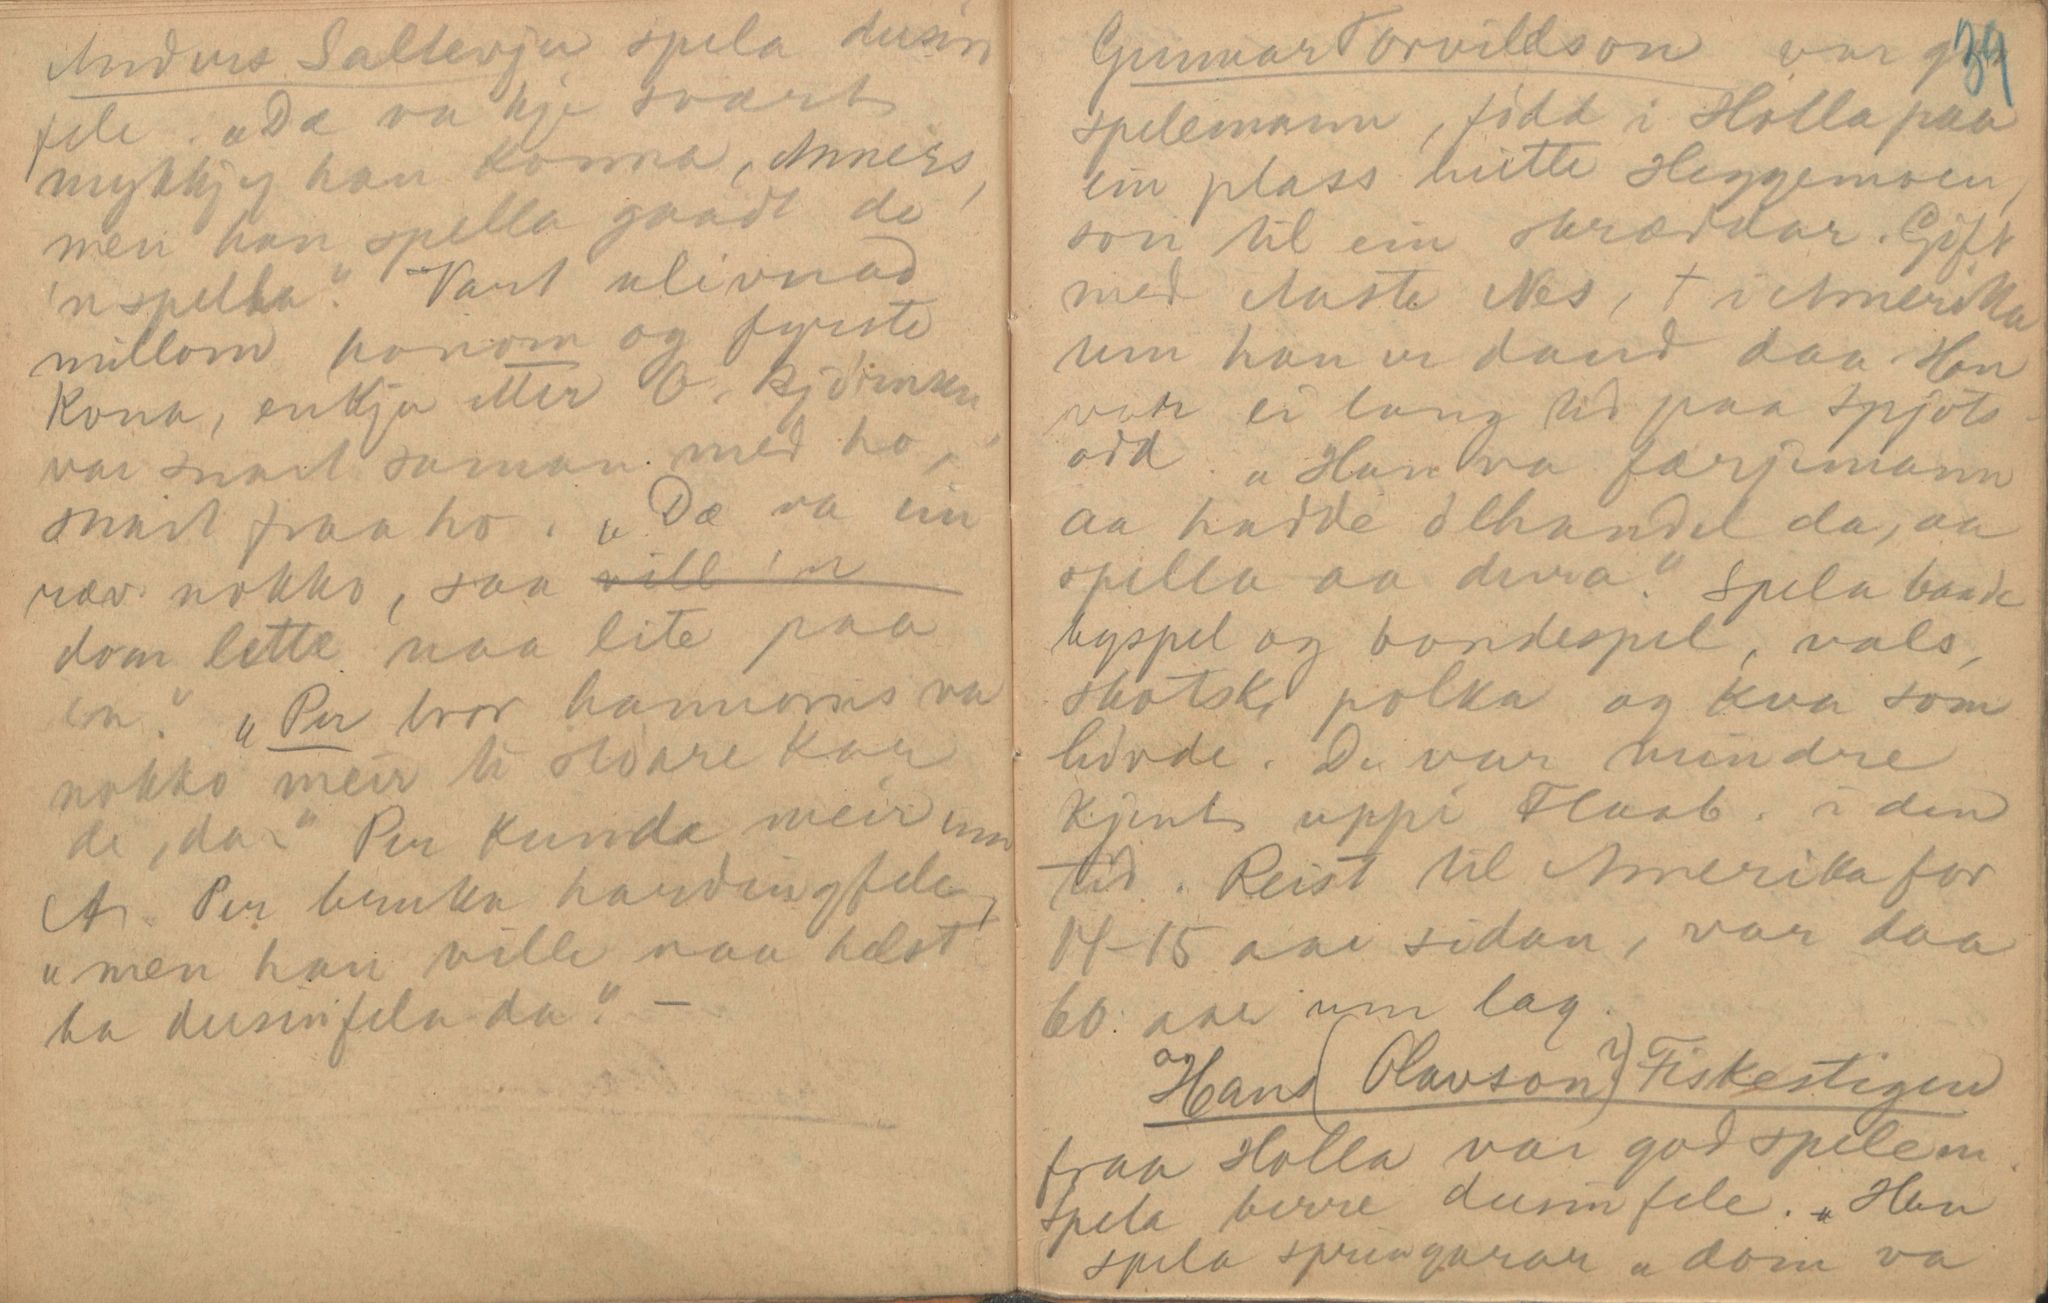 Anders Saltevju spela dusin
fele. „Dæ va kje svært
mykkjy han konna, Anners,
men han spella gaadt de
'n spella." Vart ulivnad
millom honom og fyrste
Kona, enkja etter O.
var snart saman med ho,
snart fraa ho. „Dæ va ein
ræv nokko, saa vill 'n
dom lette naa lite paa
en." „Per bror hannoms va
nokko meir ti slðare kar
de, da." Per kunda meir enn
A. Per bruka hardingfele,
„men han ville naa helst
ha dusinfela da". —
Gunnar Torvildson var g
39
spelemann, fødd i Holla paa
ein plass heitte Heggemoen,
son til ein skræddar. Gift
med Aaste Nes, † i Amerika
um han er daud daa. Han
var ei lang tid paa Spjots-
odd. „Han va færjemann
aa hadde ølhandel da, aa
spella aa dera." Spela baade
byspel og bondespel, vals,
skotsk, polka og kva som
høvde. De var mindre
kjent uppi Flaab. i den
tid. Reist til Amerika for
14-15 aar sidan, var daa
60 aar um lag.
og
Hans (Olavson?) Fiskestigen
fraa Holla var god spelem.
Spela berre dusinfele. „Han
spela springarar „dom va